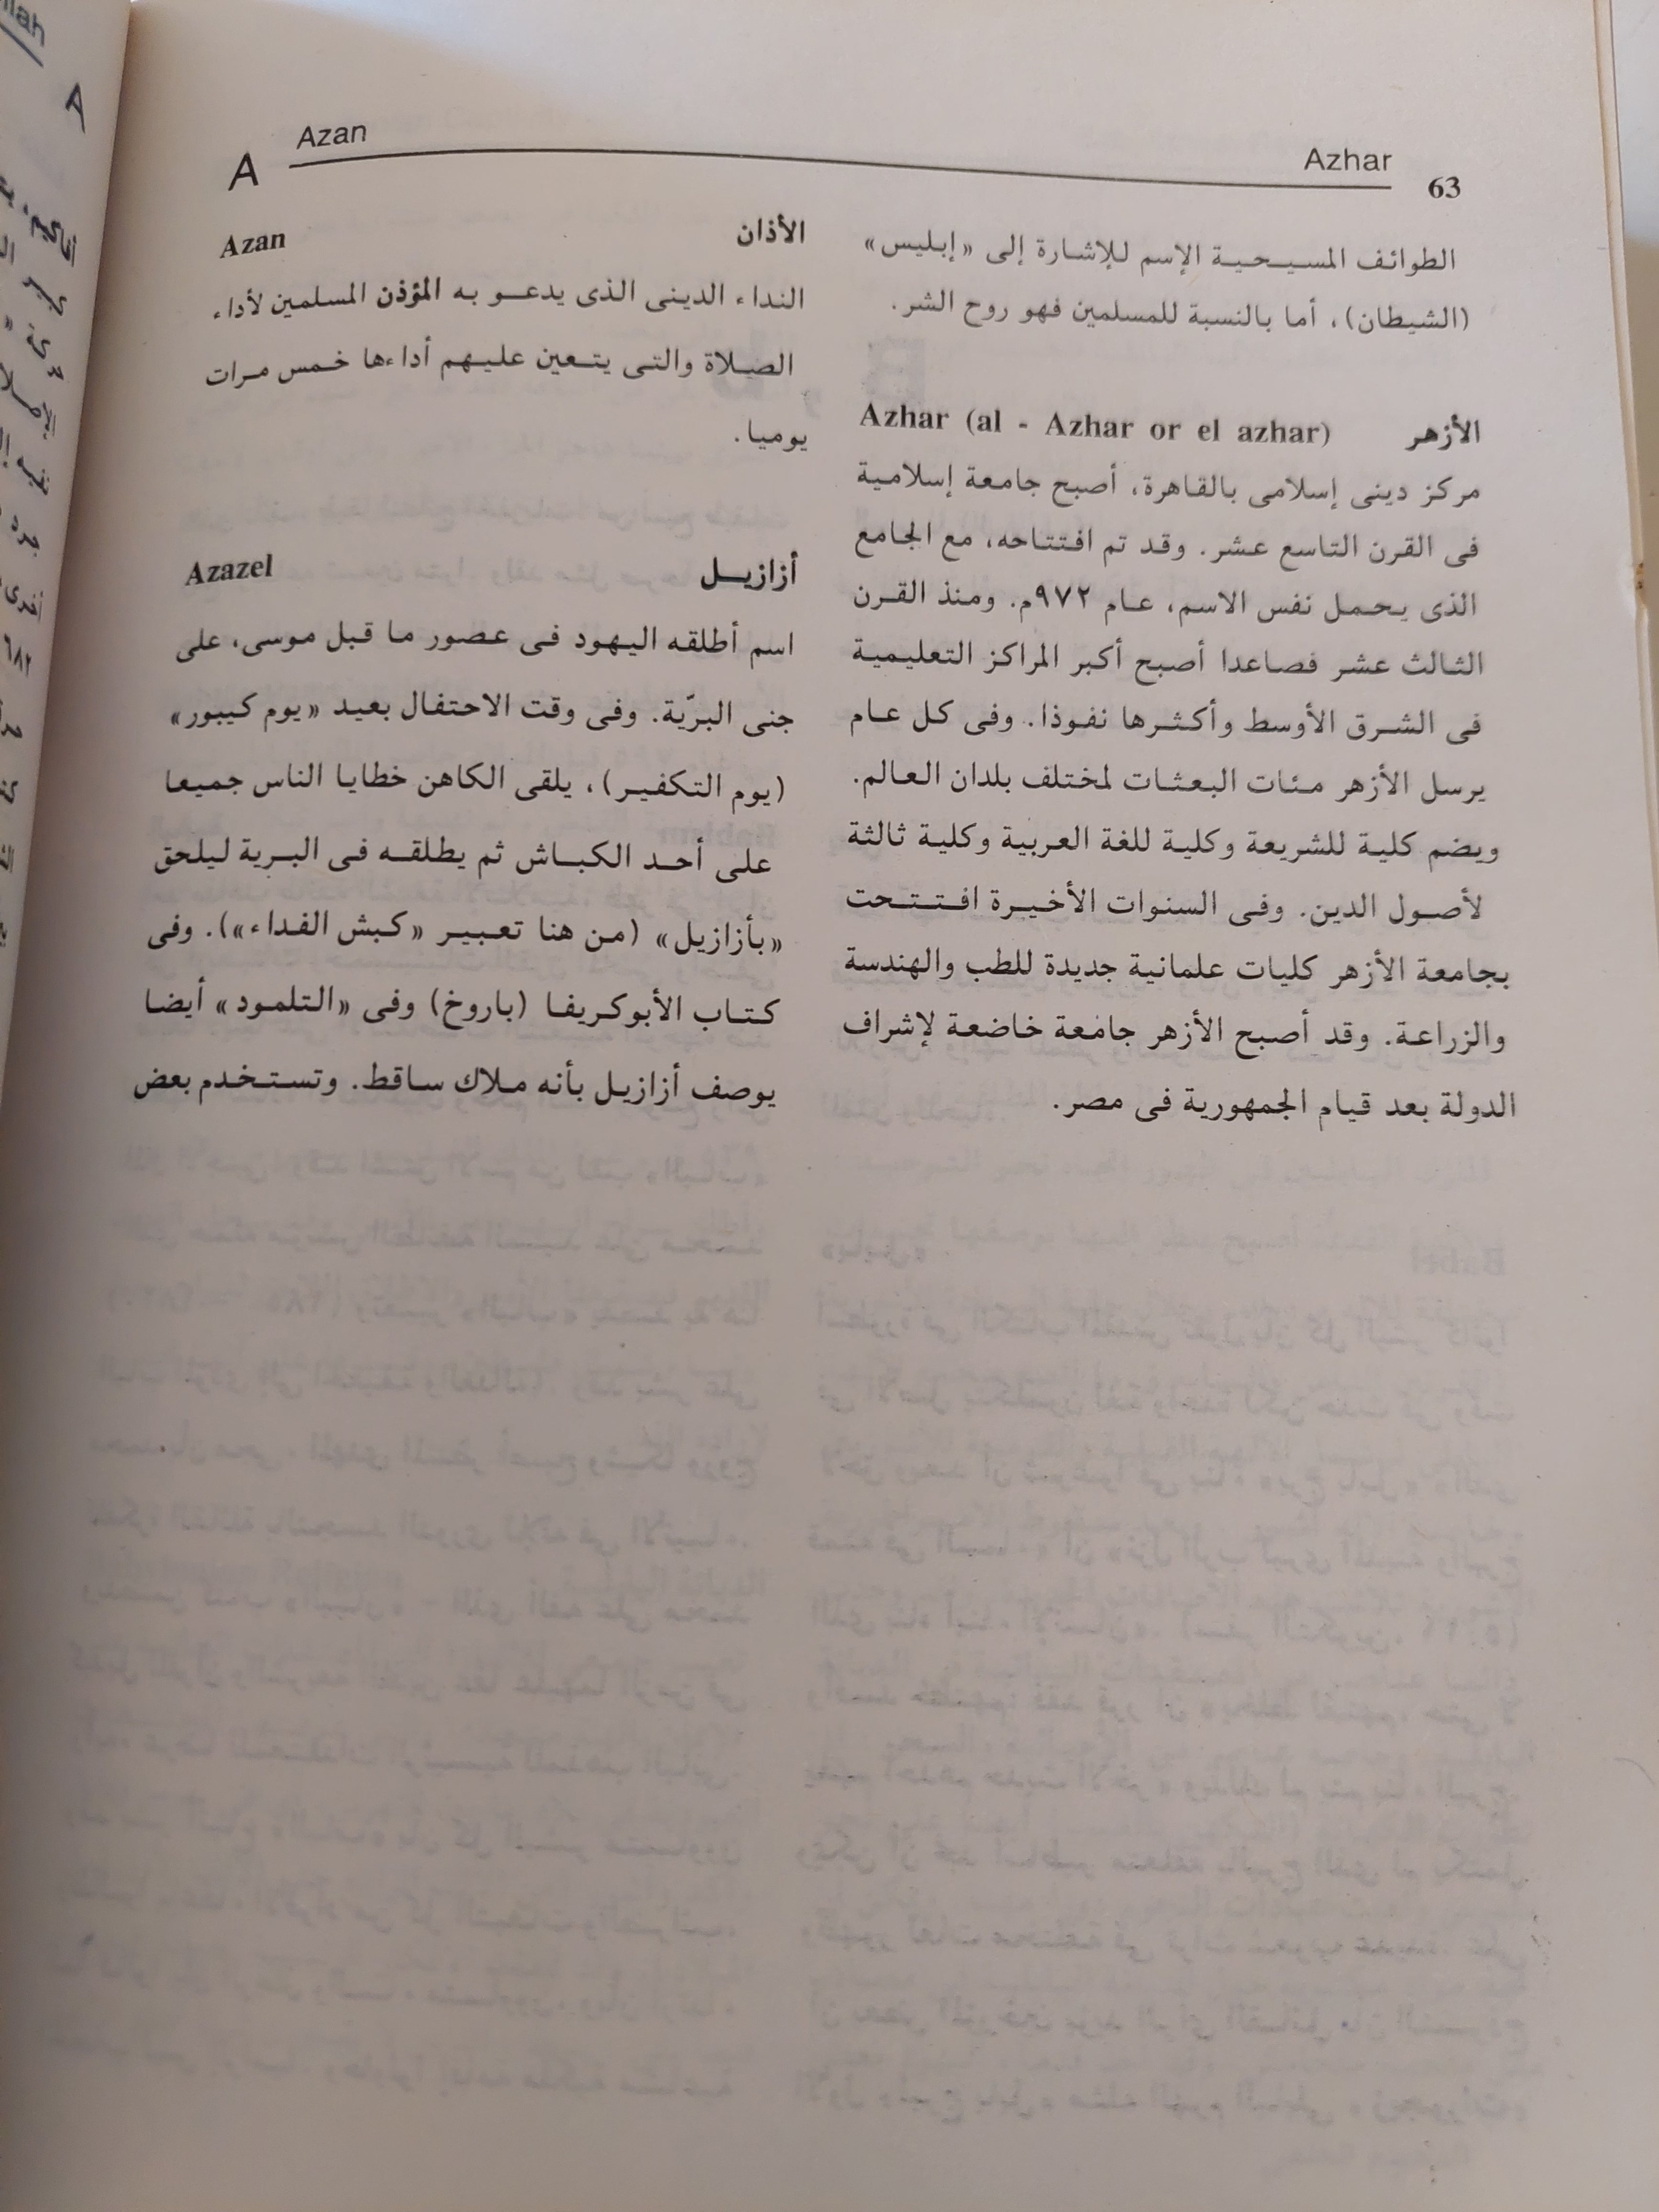 A
Azan
Azhar
63
Azan الأذان
النداء الدينى الذى يدعو به المؤذن المسلمين لأداء
الصلاة والتى يتعين عليهم أداءها خمس مرات
يوميا.
Azazel أزازيل
اسم أطلقه اليهود فى عصور ما قبل موسى، على
جنى البرّية. وفى وقت الاحتفال بعيد «يوم كيبور»
(يوم التكفير)، يلقى الكاهن خطايا الناس جميعا
على أحد الكباش ثم يطلقه فى البرية ليلحق
«بأزازيل» (من هنا تعبير «كبش الفداء»). وفى
كتاب الأبوكريفا (باروخ) وفى «التلمود» أيضا
يوصف أزازيل بأنه ملاك ساقط. وتستخدم بعض
الطوائف المسيحية الإسم للإشارة إلى «إبليس»
(الشيطان)، أما بالنسبة للمسلمين فهو روح الشر.
Azhar (al - Azhar or el azhar) الأزهر
مركز دينى إسلامى بالقاهرة، أصبح جامعة إسلامية
فى القرن التاسع عشر. وقد تم افتتاحه، مع الجامع
الذى يحمل نفس الاسم، عام ٩٧٢م. ومنذ القرن
الثالث عشر فصاعدا أصبح أكبر المراكز التعليمية
فى الشرق الأوسط وأكثرها نفوذا. وفى كل عام
يرسل الأزهر مئات البعثات لمختلف بلدان العالم.
ويضم كلية للشريعة وكلية للغة العربية وكلية ثالثة
لأصول الدين. وفى السنوات الأخيرة افتتحت
بجامعة الأزهر كليات علمانية جديدة للطب والهندسة
والزراعة. وقد أصبح الأزهر جامعة خاضعة لإشراف
الدولة بعد قيام الجمهورية فى مصر.